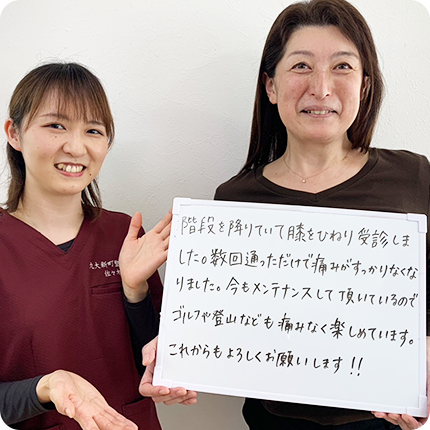 階段を降りていて膝をひねり受診しま
した。数回通っただけで痛みがすっかりなくな
りました。今もメンテナンスして頂いているので
ゴルフや登山なども痛みなく楽しめています。
これからもよろしくお願いします!!
大新町整
佐々木